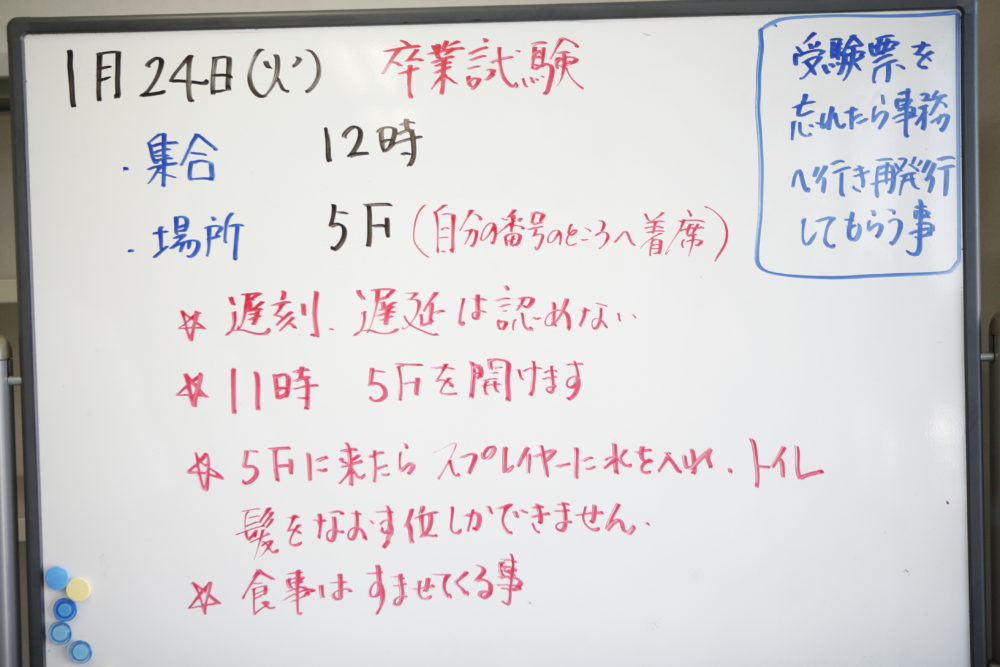 1月24日(火) 卒業試験
・集合 12時
・場所 5F(自分の番号のところへ着席)
☆遅刻、遅延は認めない
☆11時 5Fを開けます
☆5Fに来たら スプレイヤーに水を入れ、トイレ
髪をなおす位しかできません。
☆食事は すませてくる事
受験票を
忘れたら事務
へ行き再発行
してもらう事